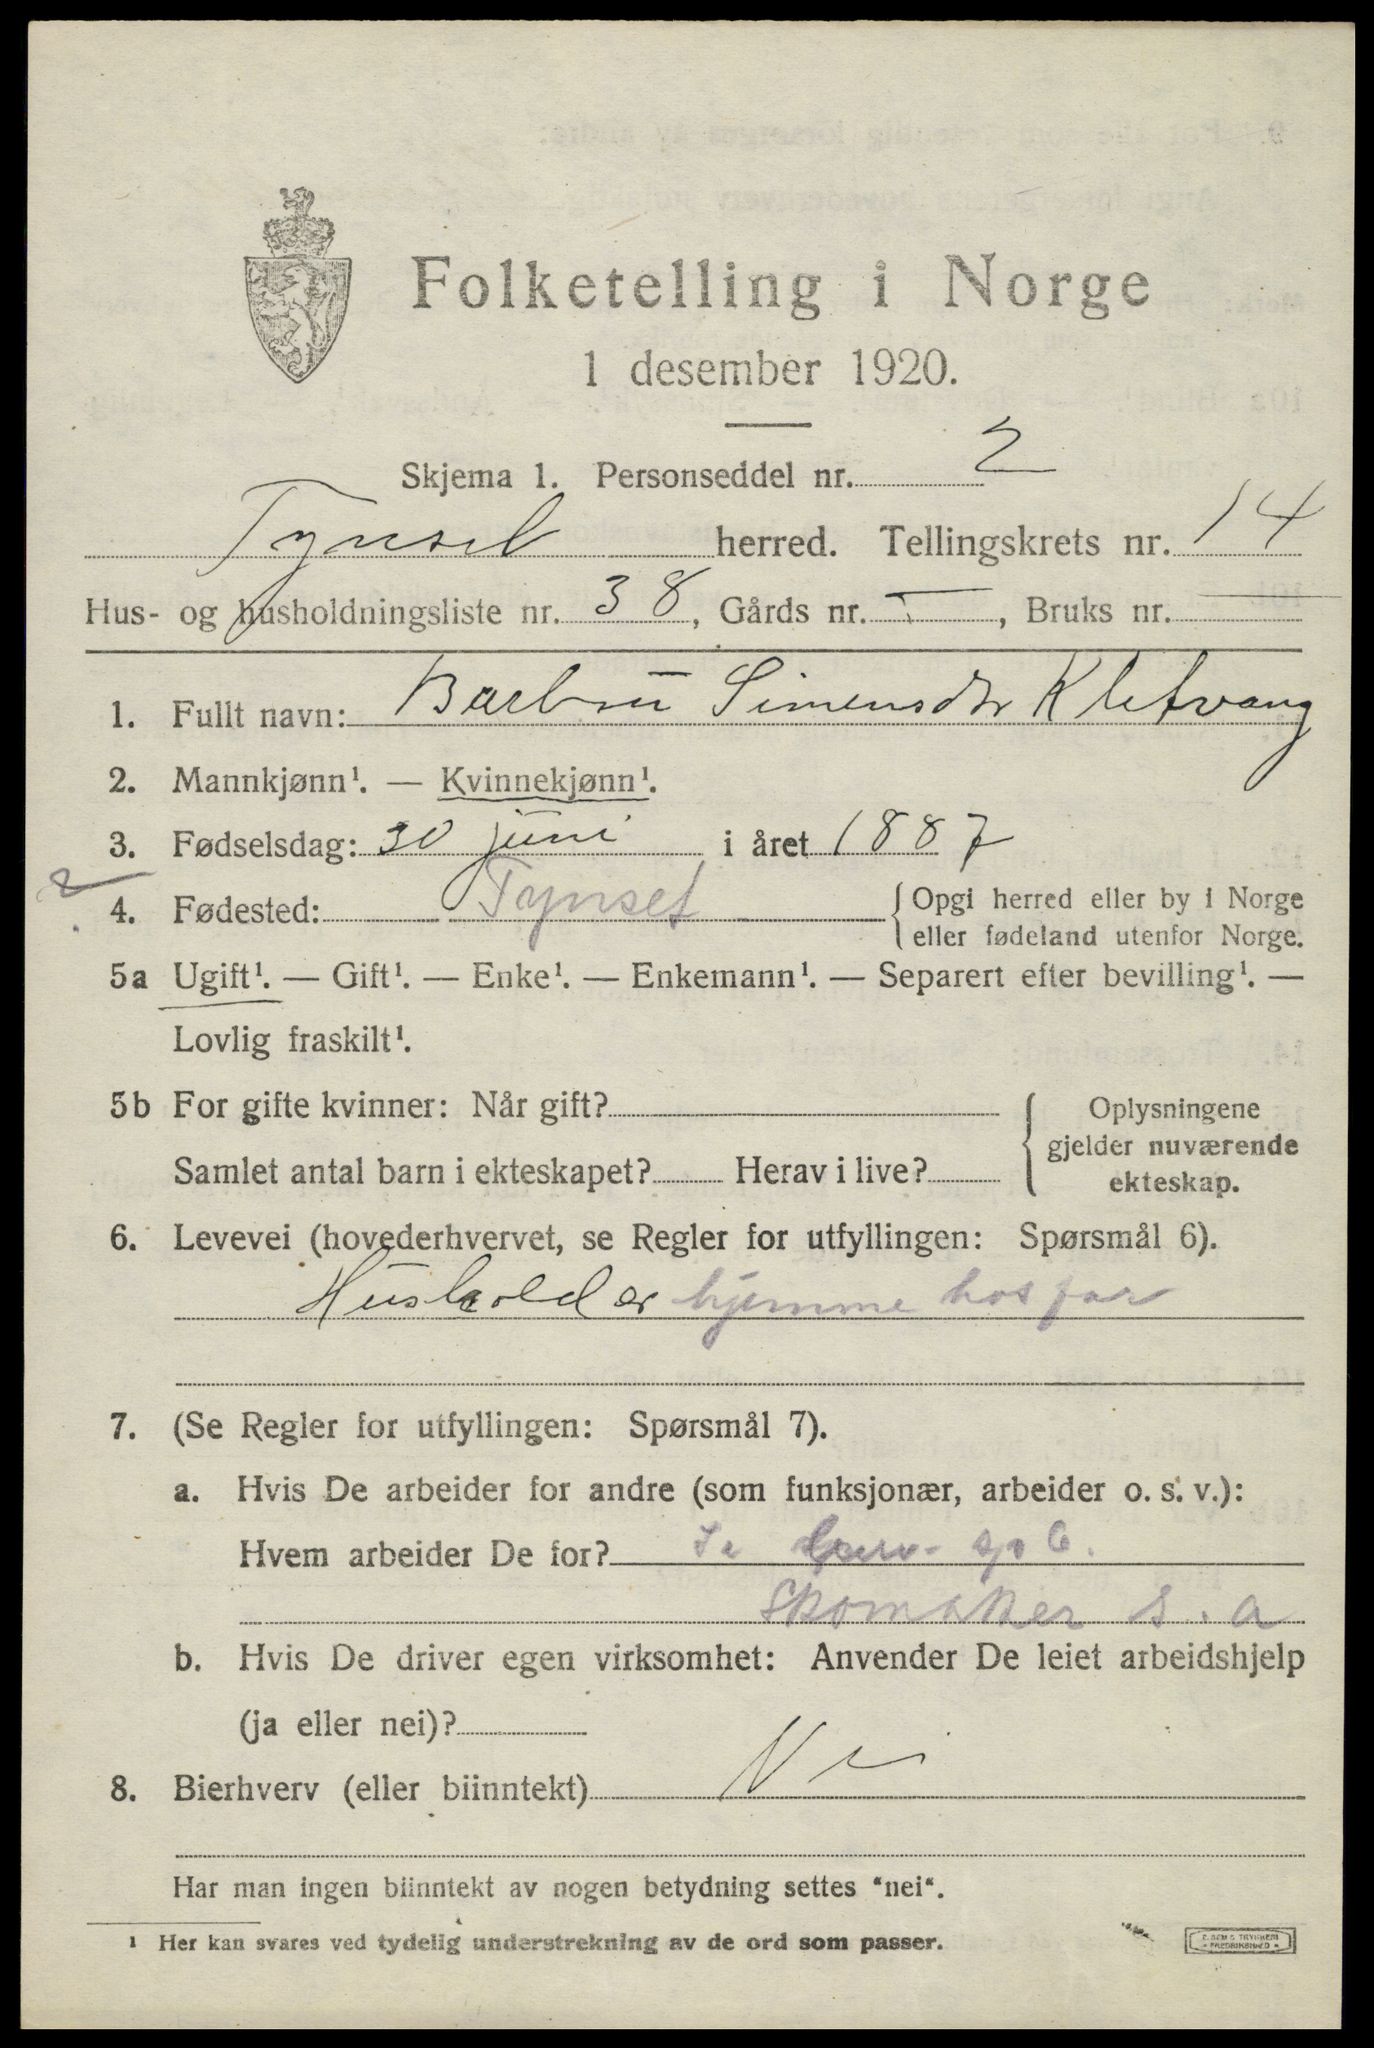 Folketelling i Norge
1 desember 1920.
Skjema 1. Personseddel nr. 2
Tynset herred. Tellingskrets nr. 14
Hus- og husholdningsliste nr. 38, Gårds nr. —, Bruks nr. —
1. Fullt navn: Barbru Simensdtr Kletvang
2. Mannkjønn¹. — Kvinnekjønn¹.
3. Fødselsdag: 30 juni i året 1887
4. Fødested: Tynset { Opgi herred eller by i Norge
eller fødeland utenfor Norge.
5a Ugift¹. — Gift¹. — Enke¹. — Enkemann¹. — Separert efter bevilling¹. —
Lovlig fraskilt¹.
5b For gifte kvinner: Når gift? { Oplysningene
gjelder nuværende
Samlet antal barn i ekteskapet? Herav i live? ekteskap.
6. Levevei (hovederhvervet, se Regler for utfyllingen: Spørsmål 6).
Husholder hjemme hos far
7. (Se Regler for utfyllingen: Spørsmål 7).
a. Hvis De arbeider for andre (som funksjonær, arbeider o. s. v.):
Hvem arbeider De for? 6.
Skomaker s. a
b. Hvis De driver egen virksomhet: Anvender De leiet arbeidshjelp
(ja eller nei)?
8. Bierhverv (eller biinntekt) Nei
Har man ingen biinntekt av nogen betydning settes "nei".
¹ Her kan svares ved tydelig understrekning av de ord som passer.